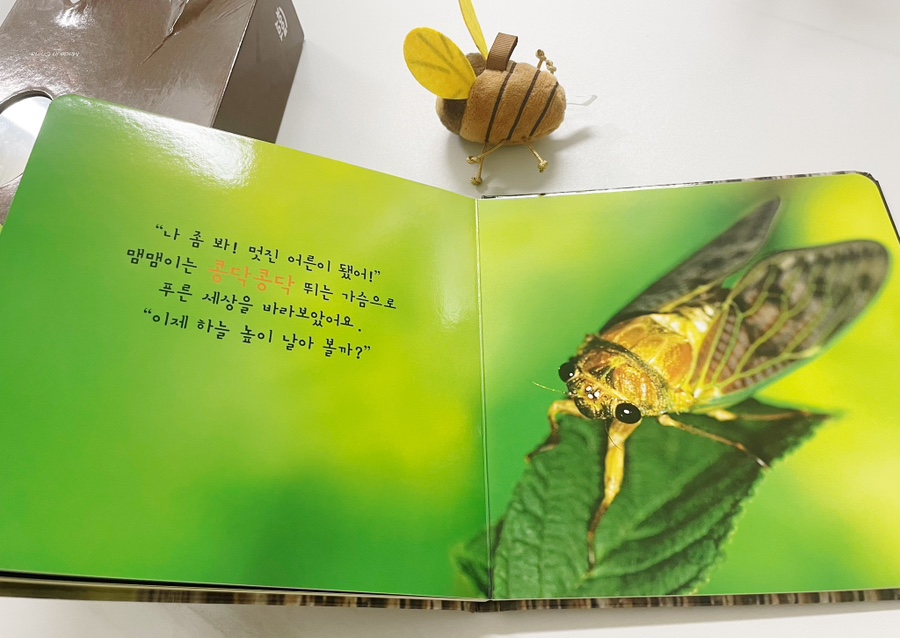 “나 좀 봐! 멋진 어른이 됐어!”
맴맴이는 콩닥콩닥 뛰는 가슴으로
푸른 세상을 바라보았어요.
“이제 하늘 높이 날아 볼까?”